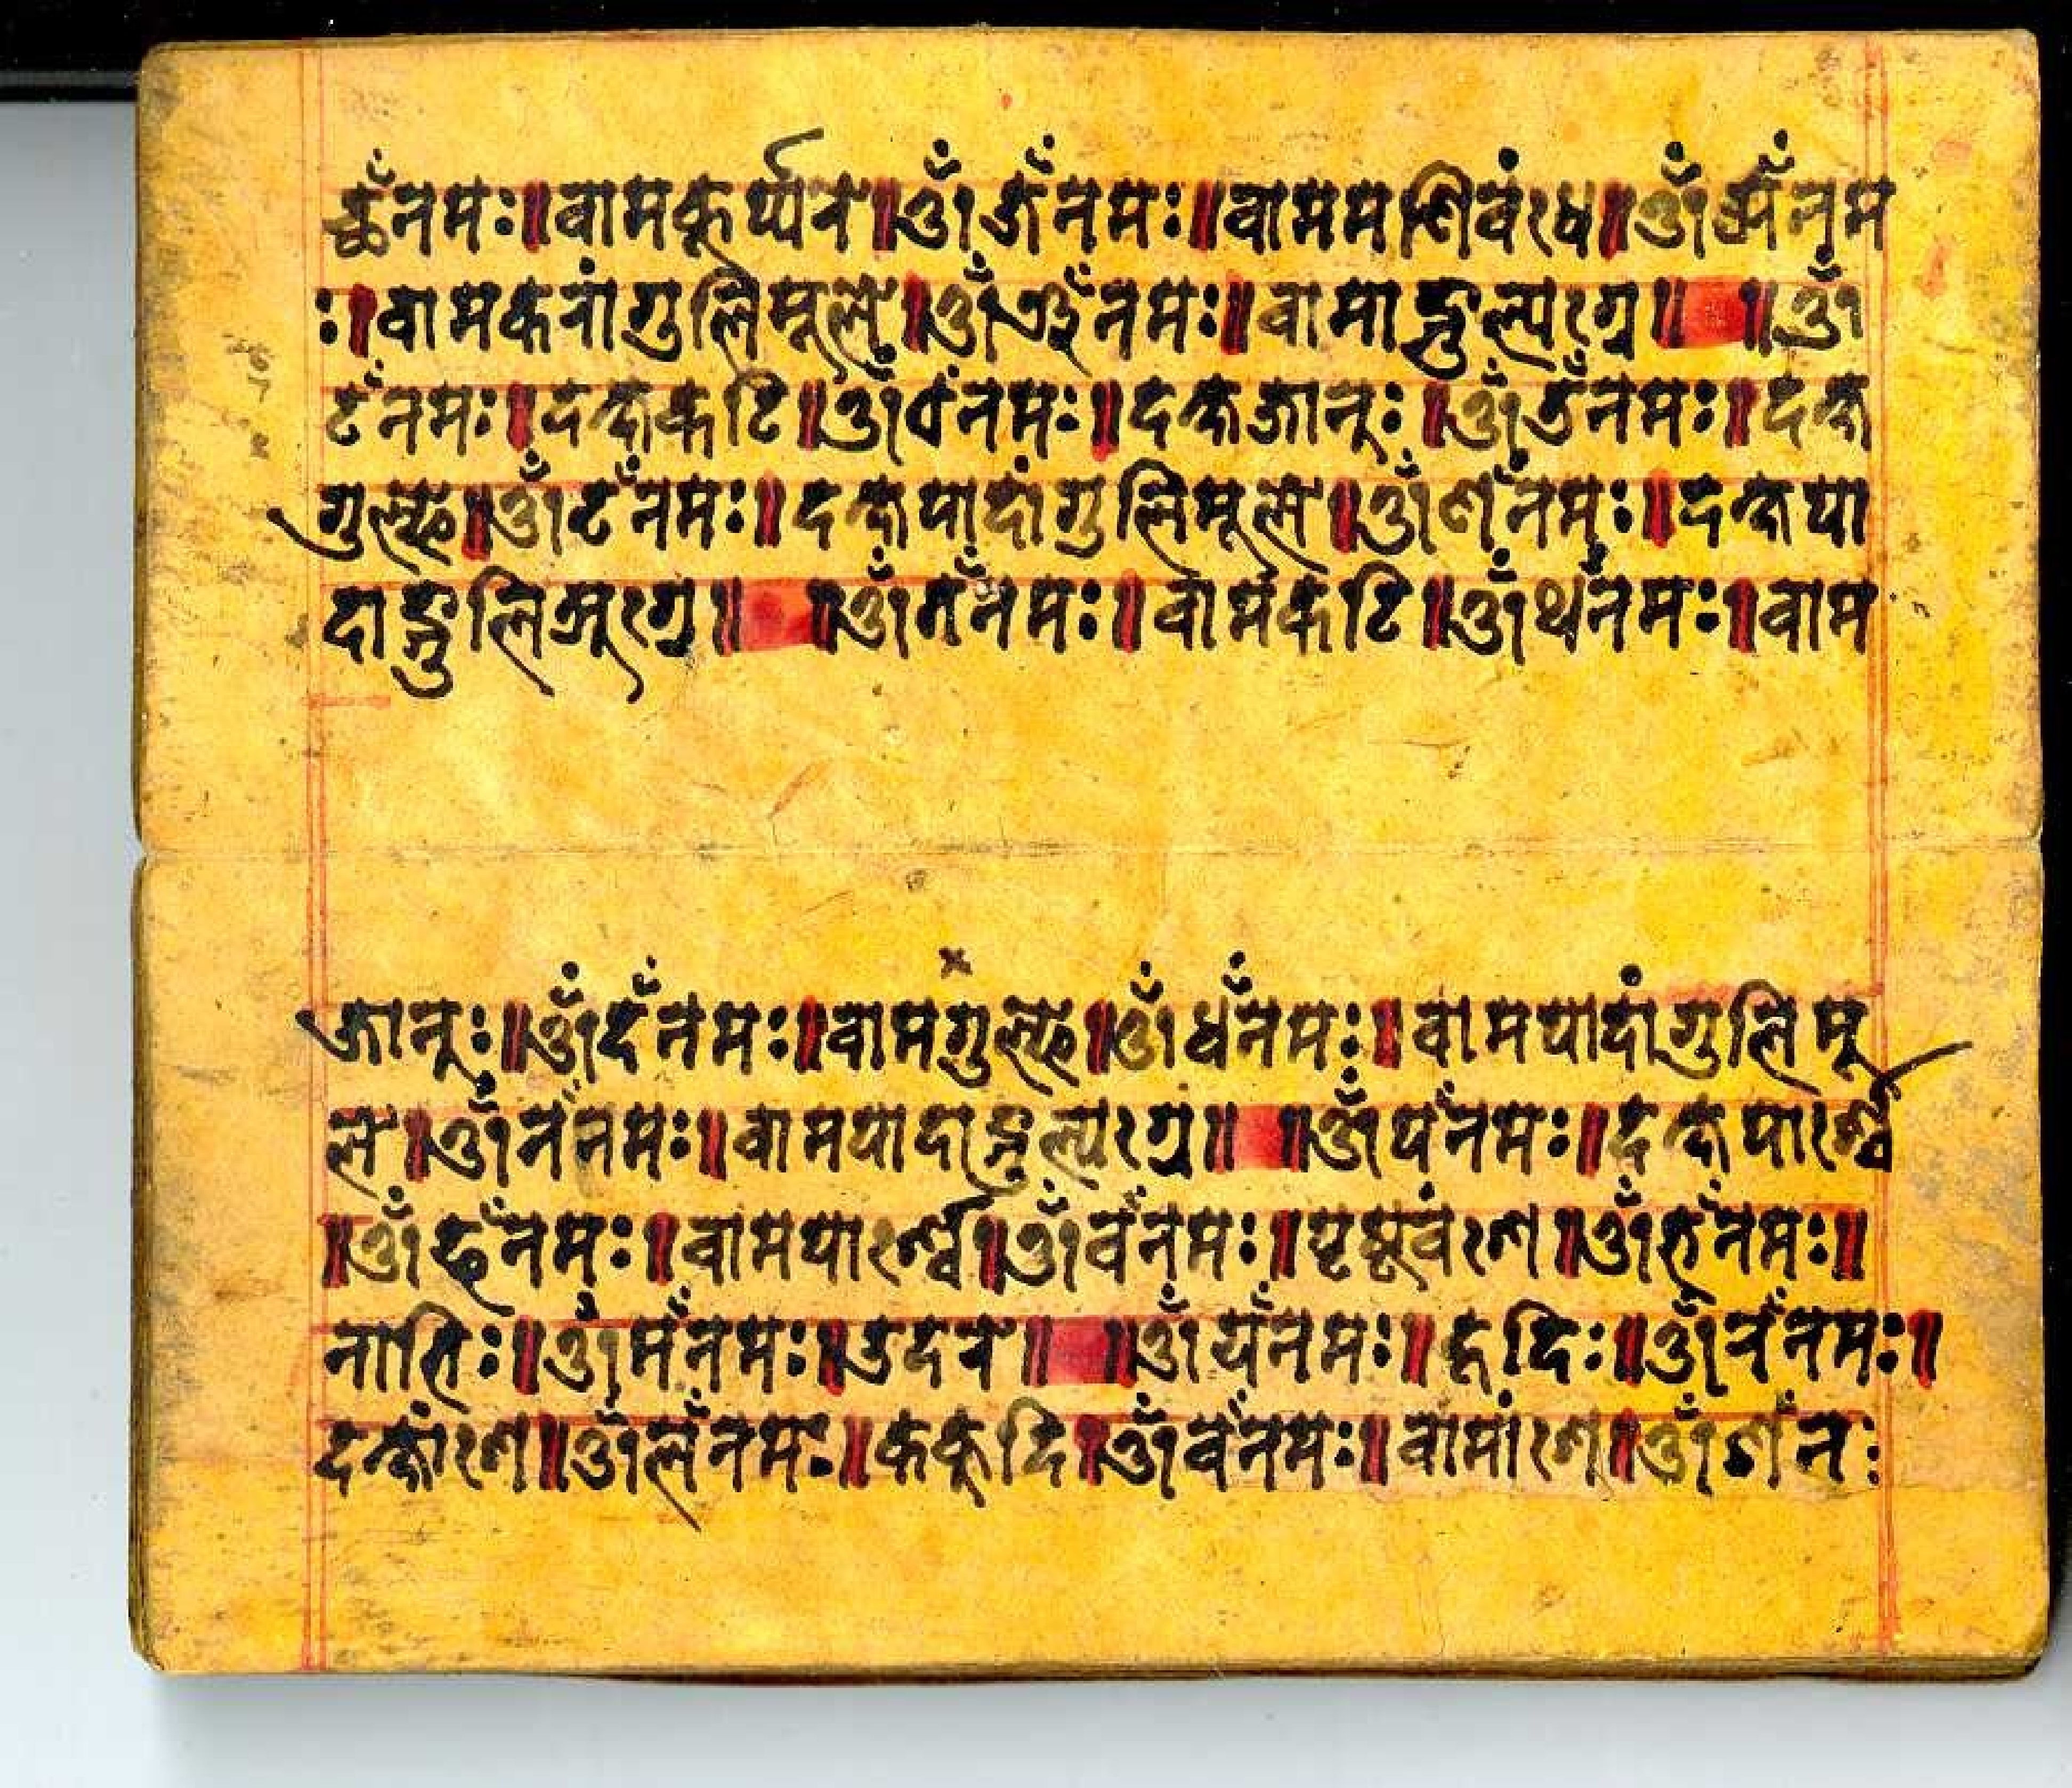 छँनमः॥वामकूर्प्पर॥ॐ जँनमः॥वाममणिवंधे॥ॐ झँनम
ः॥वामकरांगुलिमूले॥ॐ ञँनमः॥वामाङ्गुल्यग्रे॥ ॥ॐ
टँनमः॥दक्षकटि॥ॐ ठँनमः॥दक्षजानूः॥ॐ डँनमः॥दक्ष
गुल्फ॥ॐ ढँनमः॥दक्षपादांगुलिमूले॥ॐ णँनमः॥दक्षपा
दाङ्गुलिअग्रे॥ ॥ॐ तँनमः॥वामकटि॥ॐ थँनमः॥वाम
जानूः॥ॐ दँनमः॥वामगुल्फ॥ॐ धँनमः॥वामपादांगुलिमू
ले॥ॐ नँनमः॥वामपादाङ्गुल्यग्रे॥ ॥ॐ पँनमः॥दक्षपार्श्वे
॥ॐ फँनमः॥वामपार्श्वे॥ॐ बँनमः॥पृष्ठवंशे॥ॐ भँनमः॥
नाभिः॥ॐ मँनमः॥उदर॥ ॥ॐ यँनमः॥हृदिः॥ॐ रँनमः॥
दक्षांशे॥ॐ लँनमः॥ककूदि॥ॐ वँनमः॥वामांशे॥ॐ शँनः